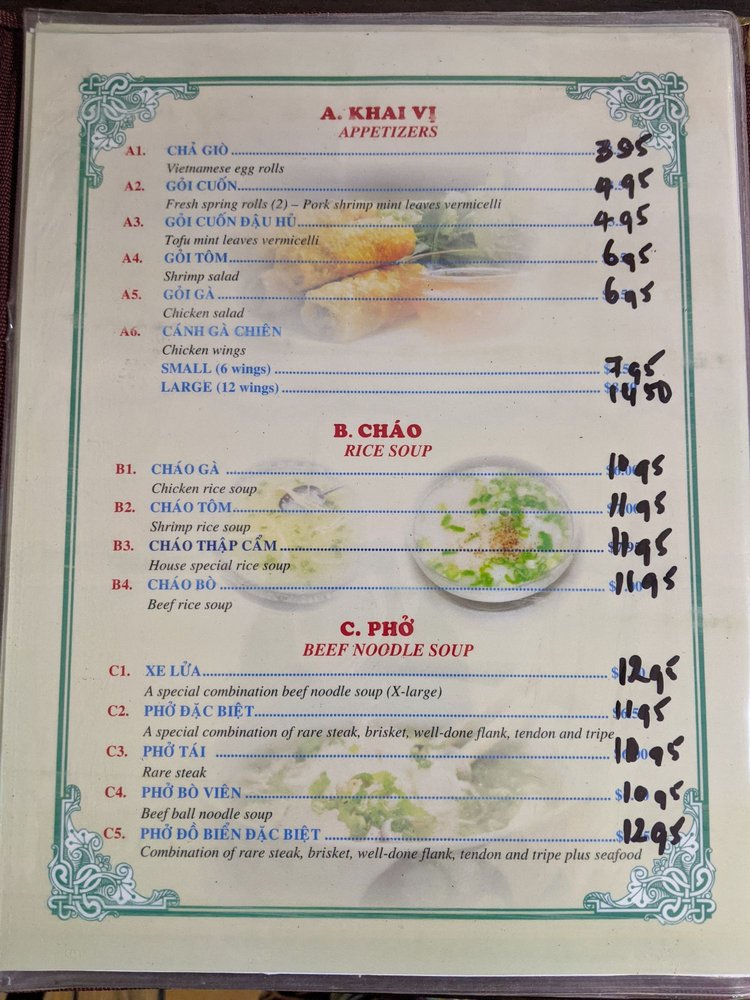 A. KHAI VỊ
APPETIZERS
A1. CHẢ GIÒ 3 95
Vietnamese egg rolls
A2. GỎI CUỐN 4 95
Fresh spring rolls (2) – Pork shrimp mint leaves vermicelli
A3. GỎI CUỐN ĐẬU HỦ 4 95
Tofu mint leaves vermicelli
A4. GỎI TÔM 6 95
Shrimp salad
A5. GỎI GÀ 6 95
Chicken salad
A6. CÁNH GÀ CHIÊN
Chicken wings
SMALL (6 wings) 7 95
LARGE (12 wings) 14 50
B. CHÁO
RICE SOUP
B1. CHÁO GÀ 10 95
Chicken rice soup
B2. CHÁO TÔM 11 95
Shrimp rice soup
B3. CHÁO THẬP CẨM 11 95
House special rice soup
B4. CHÁO BÒ 11 95
Beef rice soup
C. PHỞ
BEEF NOODLE SOUP
C1. XE LỬA 12 95
A special combination beef noodle soup (X-large)
C2. PHỞ ĐẶC BIỆT 11 95
A special combination of rare steak, brisket, well-done flank, tendon and tripe
C3. PHỞ TÁI 10 95
Rare steak
C4. PHỞ BÒ VIÊN 10 95
Beef ball noodle soup
C5. PHỞ ĐỒ BIỂN ĐẶC BIỆT 12 95
Combination of rare steak, brisket, well-done flank, tendon and tripe plus seafood